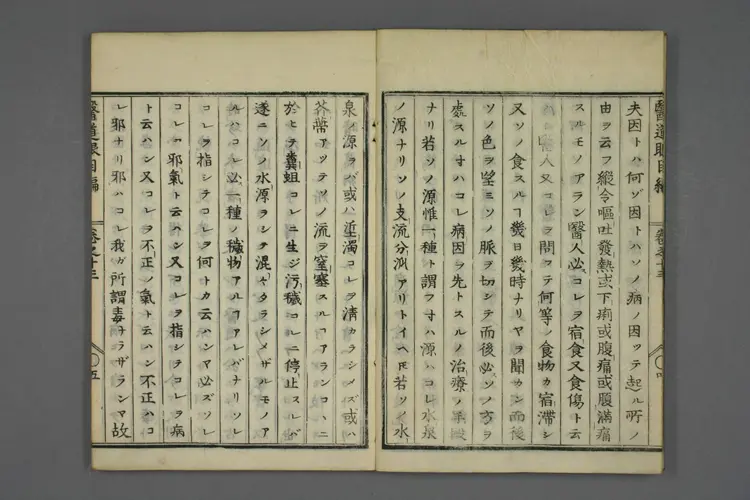 夫因トハ何ゾ因トハソノ病ノ因ッテ起ル所ノ
由ヲ云フ縱令嘔吐發熱或下痢或腹痛或腹滿痛
スルモノアラン醫人必コレヲ宿食又食傷ト云
ハン醫人又コレヲ問フテ何等ノ食物カ宿滯シ
又ソノ食スルヿ幾日幾時ナリヤヲ聞カン而後
ソノ色ヲ望ミソノ脉ヲ切シテ而後必ソノ方ヲ
處スルオハコレ病因ヲ先トスルノ治療ノ
ナリ若ソノ源惟一種ト謂フオハ源ハコレ水泉
ノ源ナリンノ支流分派アリトイヘ𪜈若ソノ水
醫道眼目編
卷之十三
泉ノ源ヲバ或ハ垽濁コレヲ清カラシメズ或ハ
芥蔕アツテソノ流ヲ窒塞スルヿアランコハニ
於ヒテ糞蛆コレニ生ジ污穢コレニ停止スルガ
遂ニソノ水源ヲシテ混ヤクラシメザルモノア
ルハコレ必一種ノ穢物アルヿアレバナリソレ
コレヲ指シテコレヲ何トカ云ハンマ必ズソレ
コレヲ邪氣ト云ハン又コレヲ指シテコレヲ病
ト云ハン又コレヲ不正ノ氣ト云ハン不正ハコ
レ邪ナリ邪ハコレ我ガ所謂毒ナラザランマ故
醫道眼目編
卷之十三
五